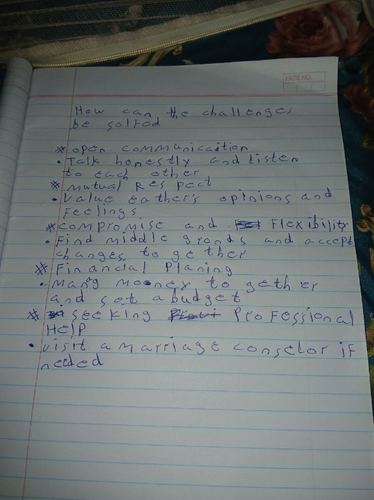 PAGE NO.
How can the challenges
be solted
* open communication
• Talk honestly and listen
to each other
* mutual Respect
• Value eather's opinions and
Feelings
* compromise and Flexibility
• Find middle gronds and accept
changes to gether
* Financial Planing
• mang mooney to gether
and set a budget
* seeking Professional
Help
• visit a marriage conselor if
needed